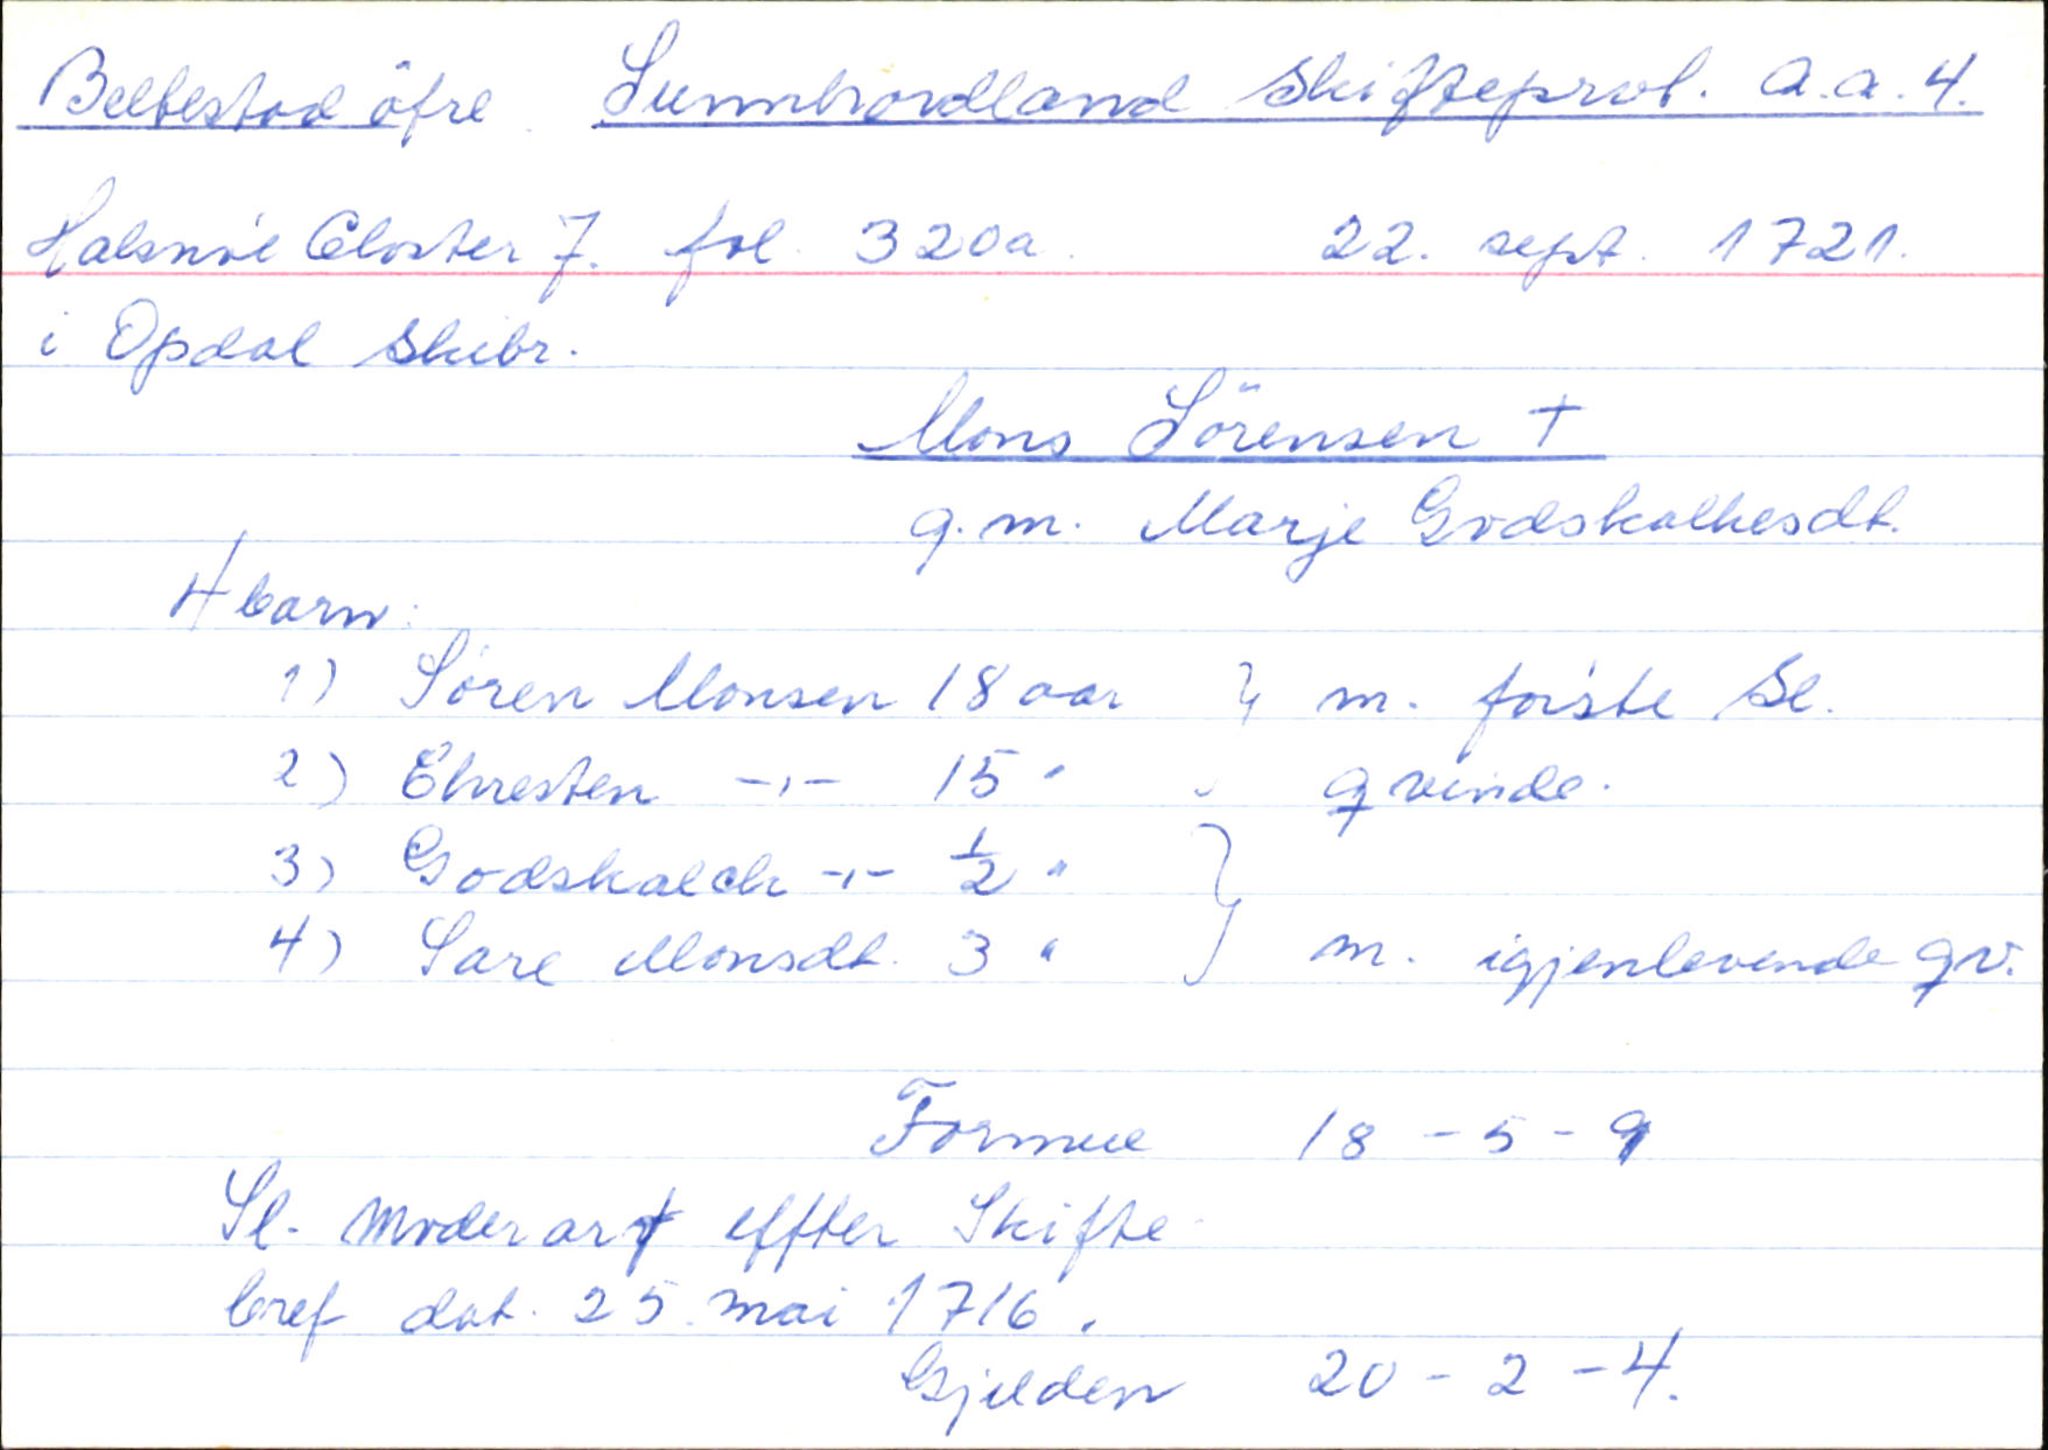 Belbestad öfre. Sunnhordland Skifteprot. a.a.4.
Halsnöe Closter J. fol. 320a. 22. sept. 1721.
i Opdal Skibr.
Mons Sörensen †
g.m. Marje Godskalkesdt.
4 barn:
1) Sören Monsen 18 aar } m. förste Sl.
2) Chresten -,,- 15 " qvinde.
3) Godskalch -,,- 1/2 "
4) Sare Monsdt. 3 " } m. igjenlevende qv.
Formue 18 - 5 - 9
Sl. Moder arf effter Skifte
bref dat. 25. mai 1716.
Gjelden 20 - 2 - 4.